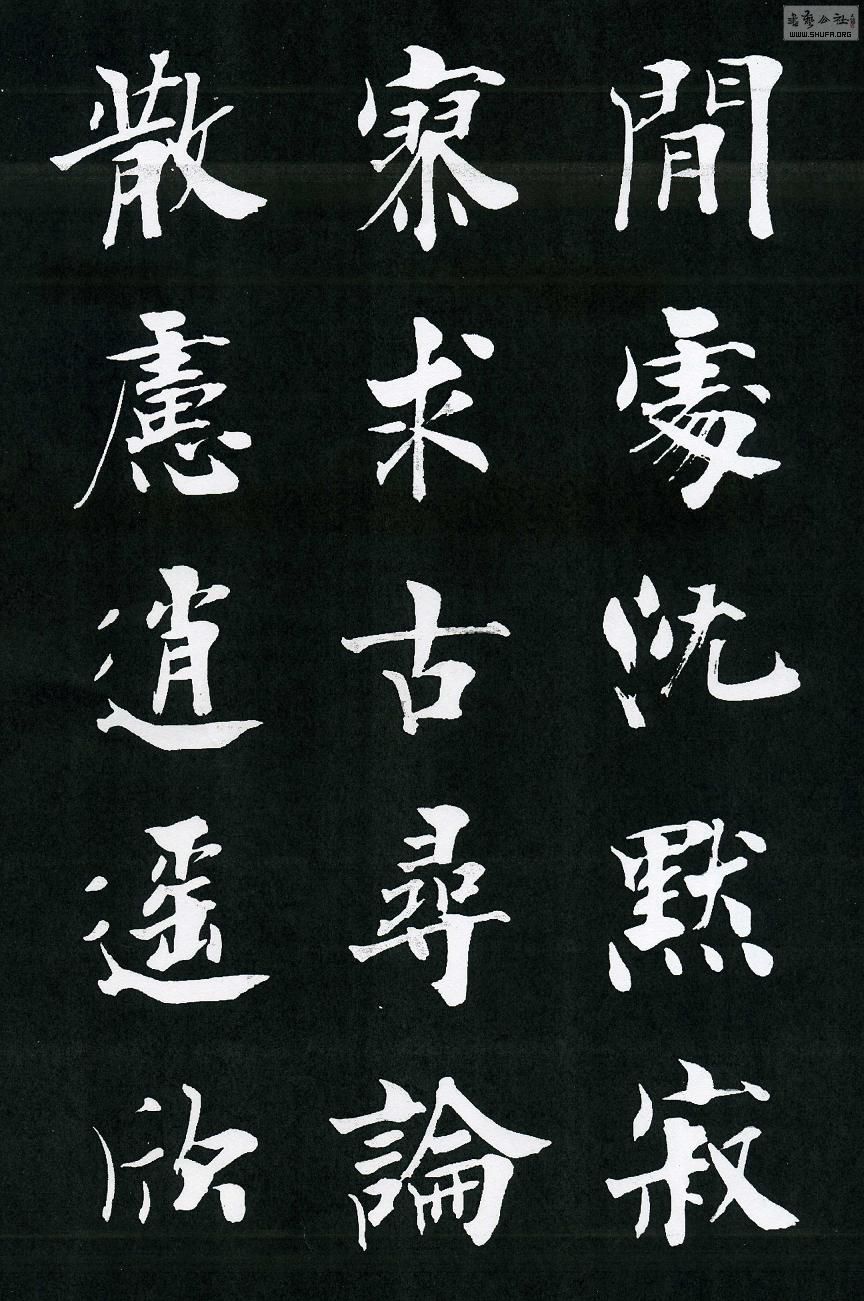 閒處沈默寂
寥求古尋論
散慮逍遥欣
WWW.SHUFA.ORG